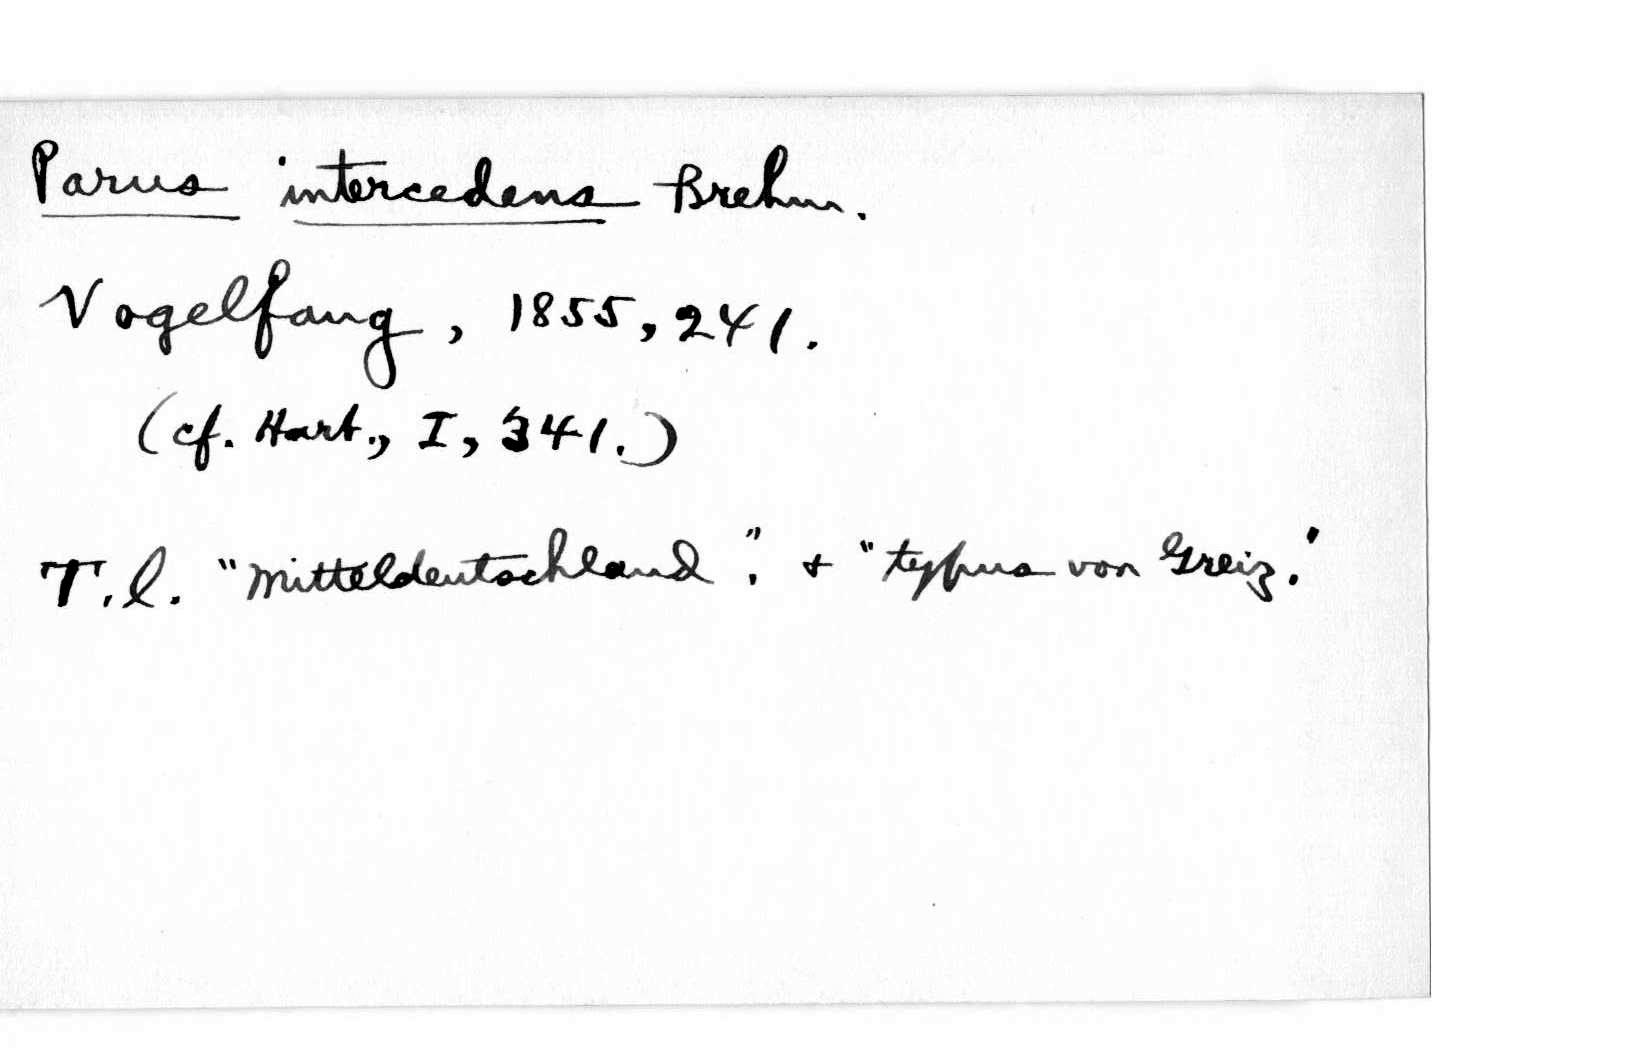 Parus intercedens Brehm.
Vogelfang, 1855, 241.
(cf. Hart., I, 341.)
T.l. "Mitteldeutschland". + "typus von Greiz."